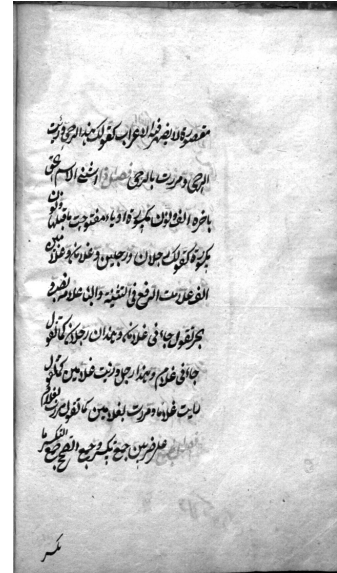 مقصورة لا يضهر فيه الاعراب كقولك هذه الرحى ورأيت
الرحى ومررت بالرحى فصل اذا اثنى الاسم لحق
باخره الف ونون مكسورة او ياء مفتوحة ما قبلها ونون
مكسورة كقولك رجلان ورجلين وغلامان وغلامين
الف علامت الرفع فى التثنية والياء علامة نصب و
جر تقول جاءنى غلامان وهذان رجلان كما تقول
جاءنى غلام وهذا رجل ورأيت غلامين كما تقول
رأيت غلاما ومررت بغلامين كما تقول مررت بغلام
على ضربين جمع تكسير وجمع الصحيح جمع التكسير ما
يكسر